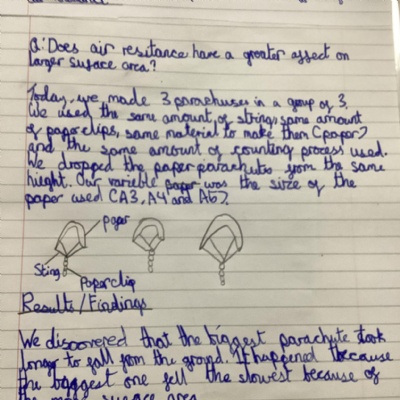 Q: Does air resitance have a greater affect on
larger surface area?
Today, we made 3 parachuses in a group of 3.
We used the same amount of string, same amount
of paperclips, same material to make them (paper)
and the same amount of counting process used.
We dropped the paper parachutes from the same
hieght. Our varible paper was the size of the
paper used (A3, A4 and A5).
paper
Sting
Paperclip
Results/Findings
We discovered that the biggest parachute took
longer to fall from the ground. It happened because
the biggest one fell the slowest because of
the more surface area